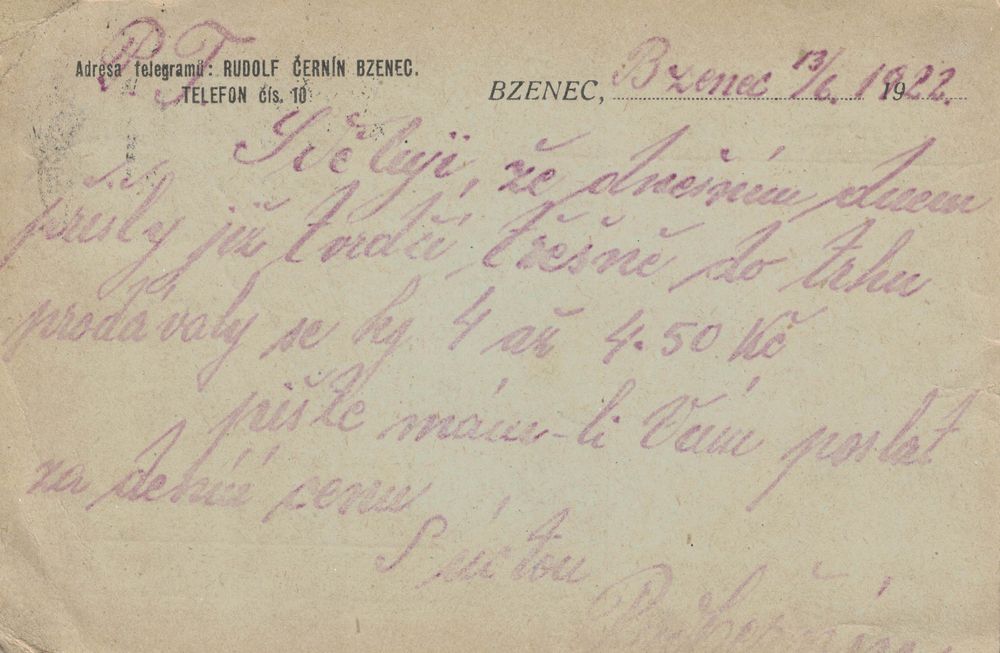 P. T.
Adresa telegramů: RUDOLF ČERNÍN BZENEC.
TELEFON čís. 10
BZENEC, Bzenec 13/6. 1922.
Sděluji, že dnešním dnem
přišly již tvrdčí třešně do trhu
prodávaly se kg. 4 až 4.50 Kč
pište mám-li Vám poslat
za denní cenu
S úctou
Rud. Černín